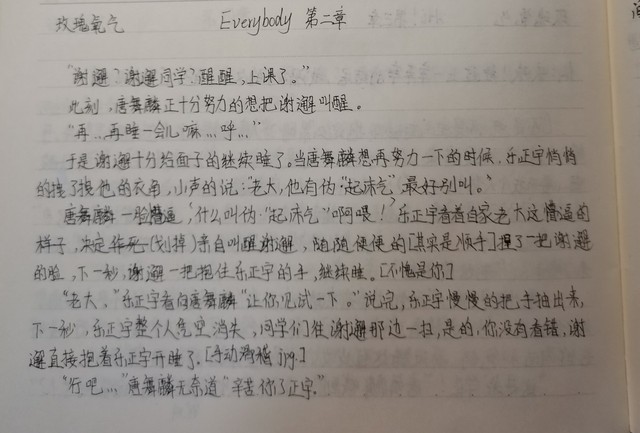 玫瑰氧气 Everybody 第二章
"谢邂?谢邂同学?醒醒,上课了。"
此刻,唐舞麟正十分努力的想把谢邂叫醒。
"再…再睡一会儿嘛…呼…"
于是谢邂十分给面子的继续睡了。当唐舞麟想再努力一下的时候,乐正宇悄悄
的拽了拽他的衣角,小声的说:"老大,他有伪"起床气",最好别叫。"
唐舞麟一脸懵逼,什么叫伪"起床气"啊喂!乐正宇看着自家老大这懵逼的
样子,决定作死(划掉)亲自叫醒谢邂,随随便便的[其实是顺手]捏了一把谢邂
的脸,下一秒,谢邂一把抱住乐正宇的手,继续睡。[不愧是你]
"老大,"乐正宇看向唐舞麟"让你见试一下。"说完,乐正宇慢慢的把手抽出来,
下一秒,乐正宇整个人凭空消失,同学们往谢邂那边一扫,是的,你没有看错,谢
邂直接抱着乐正宇开睡了。[手动滑稽jpg.]
"行吧…"唐舞麟无奈道"辛苦你了正宇。"